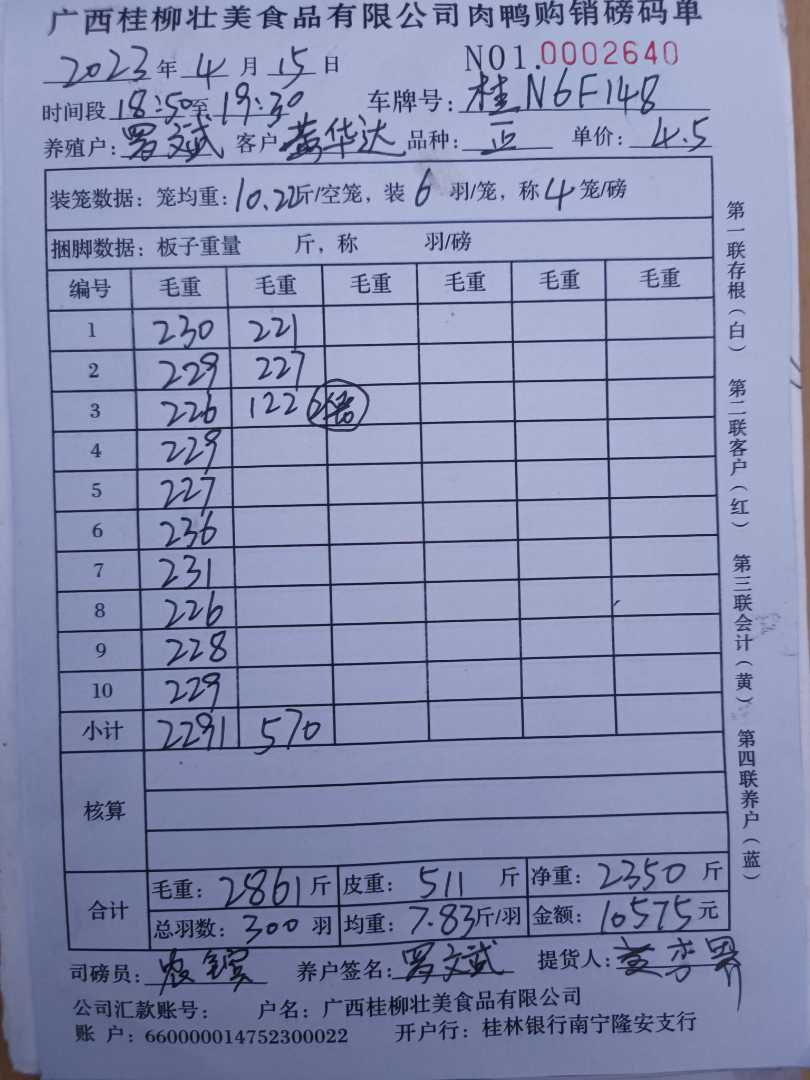 广西桂柳壮美食品有限公司肉鸭购销磅码单
2023年4月15日 NO1.0002640
时间段18:50至19:30 车牌号:桂N6F148
养殖户:罗文斌 客户黄华达 品种:正 单价:4.5
装笼数据:笼均重:10.22斤/空笼,装6羽/笼,称4笼/磅
捆脚数据:板子重量 斤,称 羽/磅
编号 毛重 毛重 毛重 毛重 毛重 毛重
1 230 221
2 229 227
3 226 122 2笼
4 229
5 227
6 236
7 231
8 226
9 228
10 229
小计 2291 570
核算
合计 毛重:2861斤 皮重:511斤 净重:2350斤
总羽数:300羽 均重:7.83斤/羽 金额:10575元
司磅员: 养户签名:罗文斌 提货人:
公司汇款账号: 户名:广西桂柳壮美食品有限公司
账 户:660000014752300022 开户行:桂林银行南宁隆安支行
第一联存根(白) 第二联客户(红) 第三联会计(黄) 第四联养户(蓝)